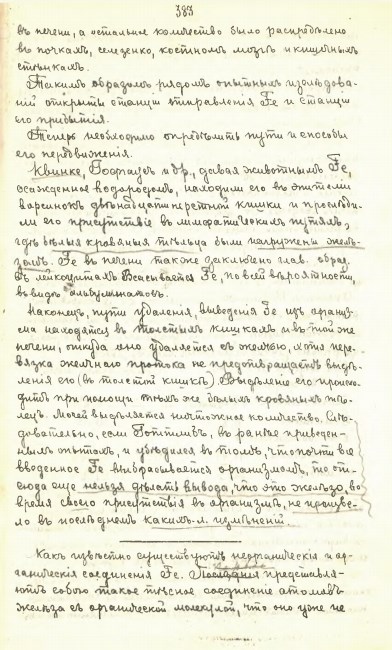 383
въ печени, а остальное количество было распредѣлено
въ почкахъ, селезенкѣ, костномъ мозгѣ и кишечныхъ
стѣнкахъ.
Такимъ образомъ рядомъ опытныхъ изслѣдова-
ній открыты станціи отправленія Fe и станціи
его прибытія.
Теперь необходимо опредѣлить пути и способы
его передвиженія.
Квинке, Гофманъ и др., давая животнымъ Fe,
осажденное водородомъ, находили его въ эпителіи
ворсинокъ двѣнадцатиперстной кишки и прослѣди-
ли его присутствіе въ лимфатическихъ путяхъ,
гдѣ бѣлыя кровяныя тѣльца были нагружены желѣ-
зомъ. Fe въ печени также заключено глав. образ.
въ лейкоцитахъ. Всасывается Fe, по всей вѣроятности,
въ видѣ альбуминатовъ.
Наконецъ, пути удаленія, выведенія Fe изъ организ-
ма находятся въ толстыхъ кишкахъ и въ той же
печени, откуда оно удаляется съ желчью, хотя пере-
вязка желчнаго протока не предотвращаетъ выдѣ-
ленія его (въ толстой кишкѣ). Выдѣленіе его происхо-
дитъ при помощи тѣхъ же бѣлыхъ кровяныхъ тѣ-
лецъ. Мочей выдѣляется ничтожное количество. Слѣ-
довательно, если Готтлибъ, въ ранѣе приведен-
ныхъ опытахъ, и убѣдился въ томъ, что почти все
введенное Fe выбрасывается организмомъ, то от-
сюда еще нельзя дѣлать вывода, что это желѣзо, во
время своего присутствія въ организмѣ, не произве-
ло въ послѣднемъ какихъ-л. измѣненій.
Какъ извѣстно существуютъ неорганическія и ор-
ганическія соединенія Fe. Послѣднія представля-
ютъ собою такое тѣсное соединеніе атомовъ
желѣза съ органической молекулой, что оно уже не